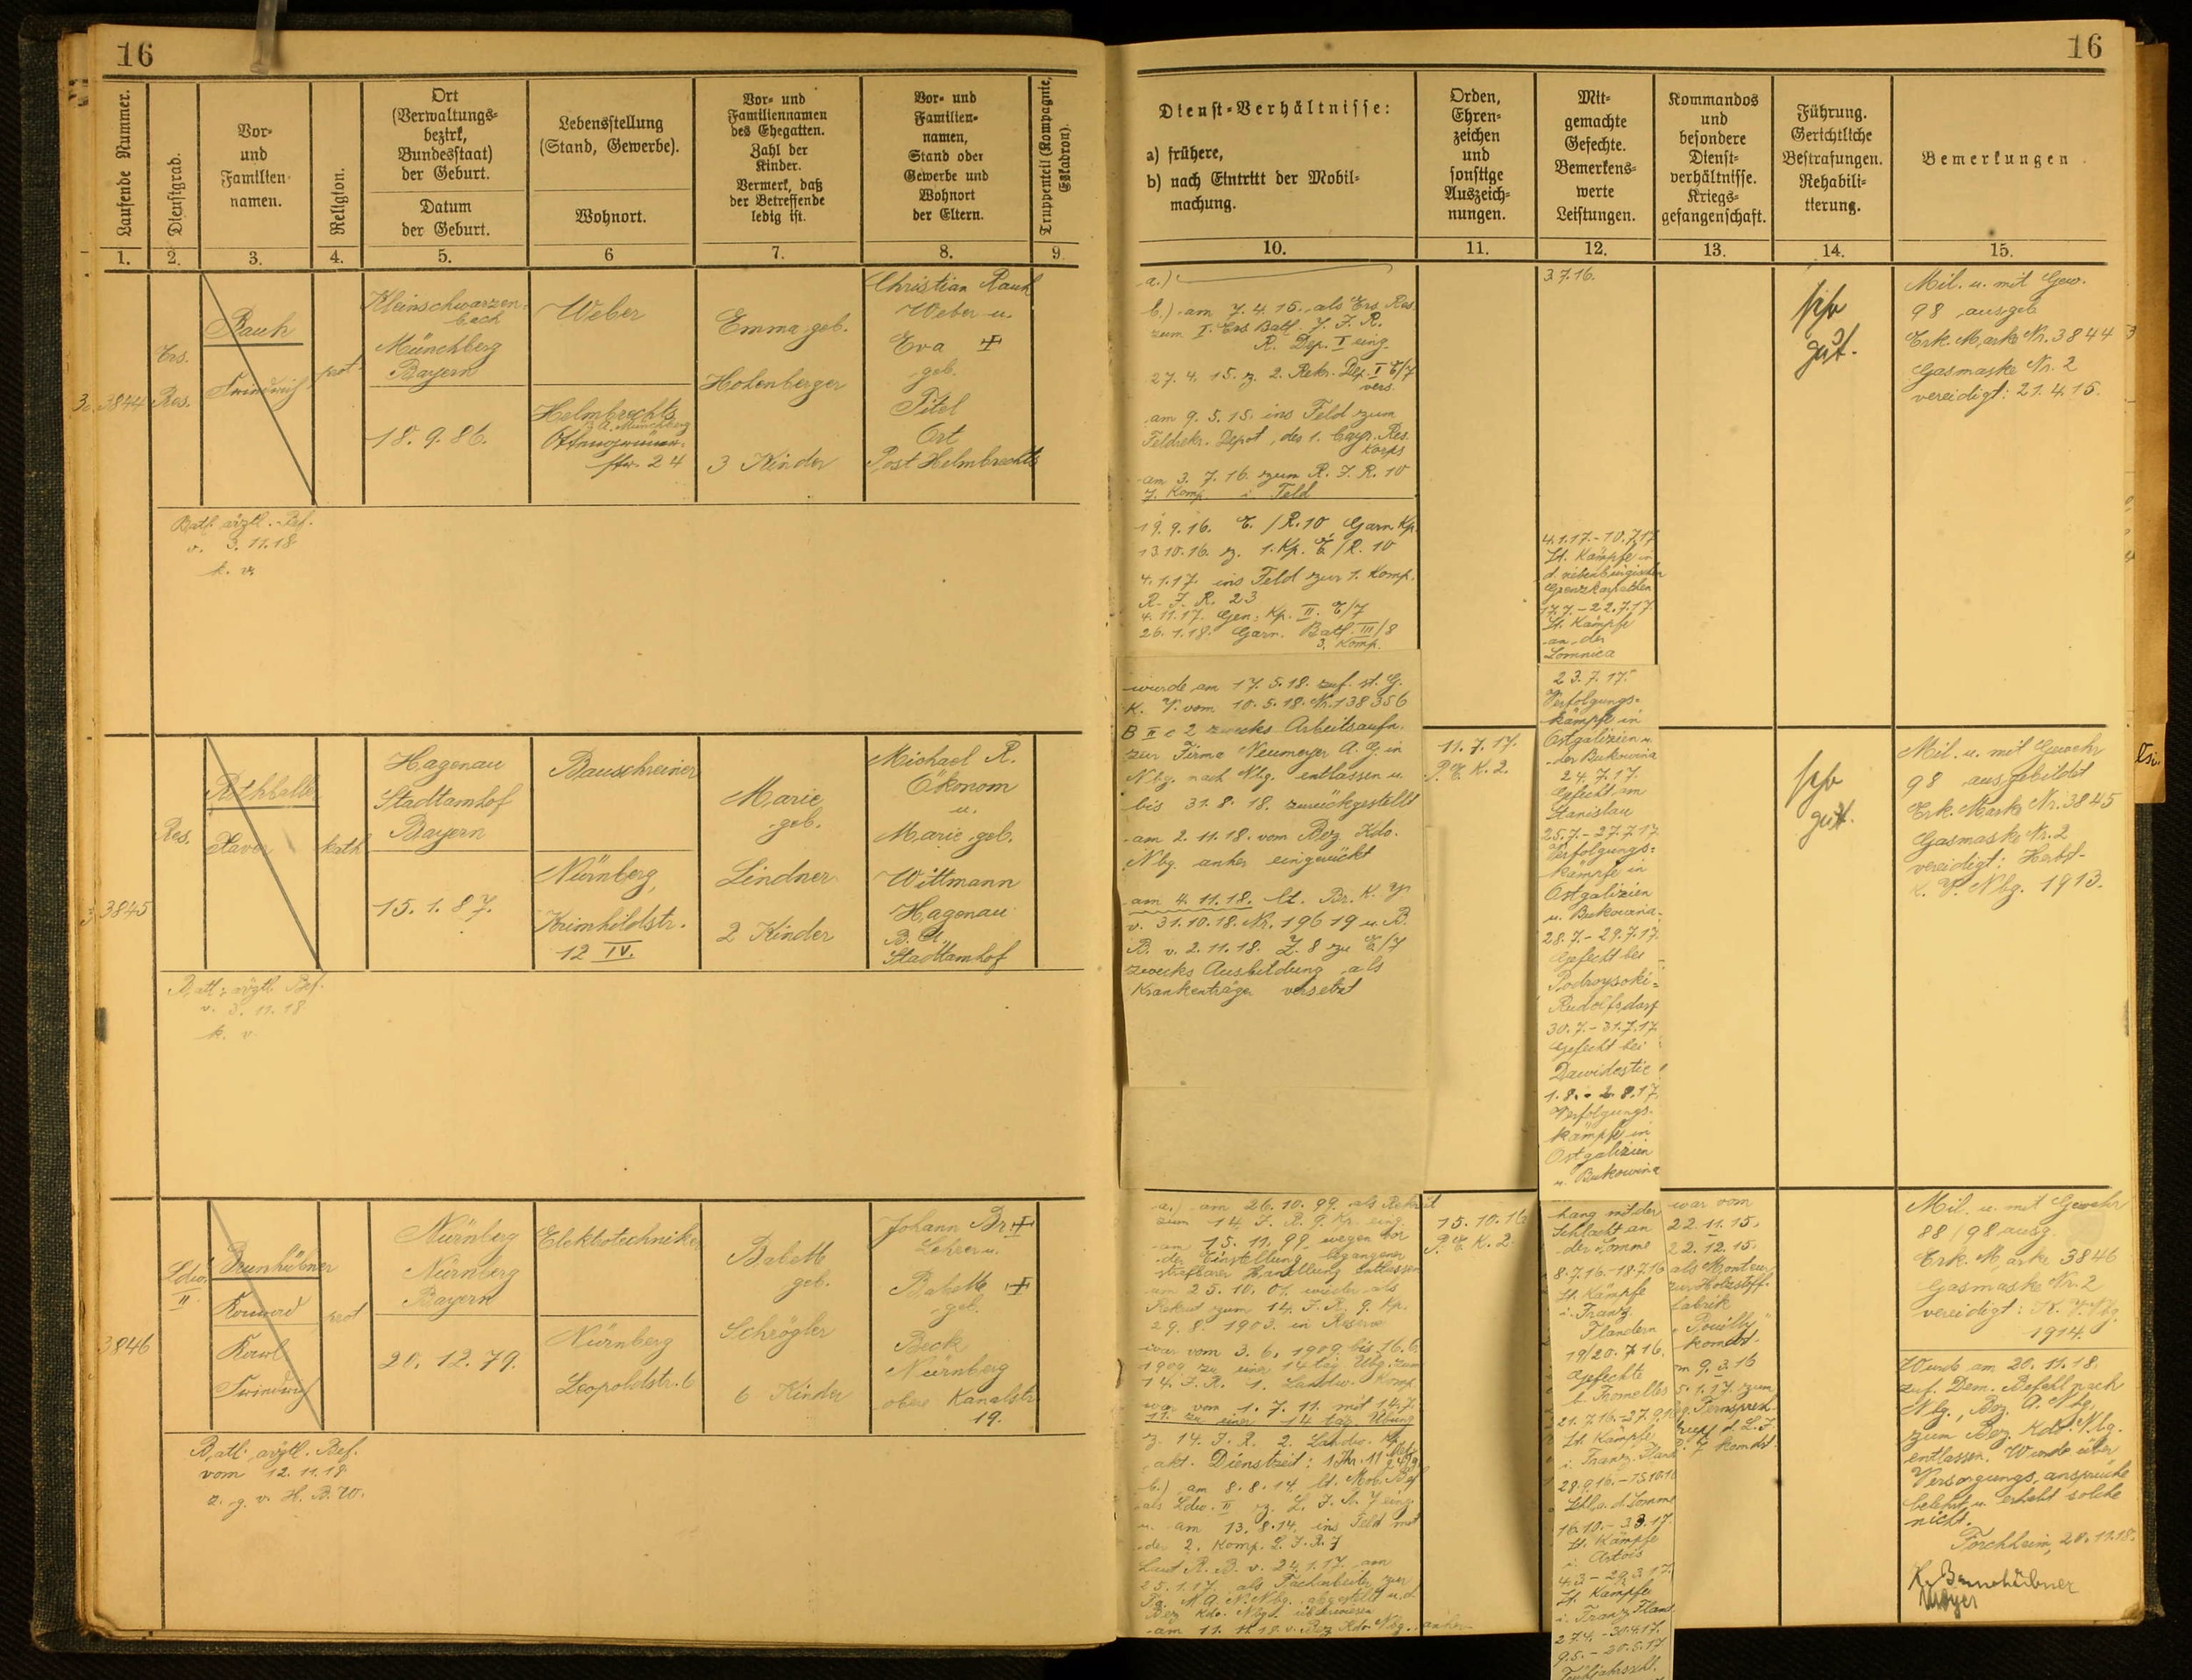 16
Laufende Nummer.
Dienstgrad.
Vor-
und
Familien-
namen.
Religion.
Ort
(Verwaltungs-
bezirk,
Bundesstaat)
der Geburt.
Datum
der Geburt.
Lebensstellung
(Stand, Gewerbe).
Wohnort.
Vor- und
Familiennamen
des Ehegatten.
Zahl der
Kinder.
Vermerk, daß
der Betreffende
ledig ist.
Vor- und
Familien-
namen,
Stand oder
Gewerbe und
Wohnort
der Eltern.
Truppenteil (Kompagnie,
Eskadron).
1. 2. 3. 4. 5. 6 7. 8. 9.
3844
Ers.
Res.
Rauh
Friedrich
prot.
Kleinschwarzen-
bach
Münchberg
Bayern
18. 9. 86.
Weber
Helmbrechts
B. A. Münchberg
24
Emma geb.
Hohenberger
3 Kinder
Christian Rauh
Weber u.
Eva ✝
geb.
Pitel
Ort
Post Helmbrechts
Batl. ärztl. Bef.
v. 3. 11. 18
k. v.
3845
Res.
Rothballer
Xaver
kath
Hagenau
Stadtamhof
Bayern
15. 1. 87.
Bauschreiner
Nürnberg,
Krimhildstr.
12 IV.
Marie
geb.
Lindner
2 Kinder
Michael R.
Ökonom
u.
Marie geb.
Wittmann
Hagenau
B. A.
Stadtamhof
Batl. ärztl. Bef.
v. 3. 11. 18
k. v.
3846
Ldw.
II
Brunhübner
Konrad
Karl
Friedrich
prot
Nürnberg
Nürnberg
Bayern
20. 12. 79.
Elektrotechniker
Nürnberg
Leopoldstr. 6
Babett
geb.
Schrögler
6 Kinder
Johann Br. ✝
Lehrer u.
Babett ✝
geb.
Beck
Nürnberg
obere Kanalstr
19.
Batl. ärztl. Bef.
vom 12. 11. 18
a. g. v. H. B. W.
16
Dienst-Verhältnisse:
a) frühere,
b) nach Eintritt der Mobil-
machung.
Orden,
Ehren-
zeichen
und
sonstige
Auszeich-
nungen.
Mit-
gemachte
Gefechte.
Bemerkens-
werte
Leistungen.
Kommandos
und
besondere
Dienst-
verhältnisse.
Kriegs-
gefangenschaft.
Führung.
Gerichtliche
Bestrafungen.
Rehabili-
tierung.
Bemerkungen
10. 11. 12. 13. 14. 15.
a.)
b.) am 7. 4. 15. als Ers. Res.
zum I. Ers. Batl. 7. J. R.
R. Dep. I eing.
27. 4. 15. z. 2. Rekr. Dep. I E/7
vers.
am 9. 5. 15. ins Feld zum
Feldrekr. Depot des 1. bayr. Res.
Korps
am 3. 7. 16. zum R. J. R. 10
7. Komp. i. Feld
19. 9. 16. E. / R. 10 Garn. Kp.
13. 10. 16. z. 1. Kp. E / R. 10
4. 1. 17. ins Feld zur 1. Komp.
R. J. R. 23
4. 11. 17. Gen. Kp. II. E/7
26. 1. 18. Garn. Batl. III/8
3. Komp.
wurde am 17. 5. 18. zuf. st. G.
K. V. vom 10. 5. 18. Nr. 138356
B II c 2 zwecks Arbeitsaufn.
zur Firma Neumeyer A. G. in
Nbg. nach Nbg. entlassen u.
bis 31. 8. 18. zurückgestellt
am 2. 11. 18. vom Bez. Kdo.
Nbg. anher eingerückt
am 4. 11. 18. lt.
v. 31. 10. 18. Nr. 19619 u. B.
B. v. 2. 11. 18. Z. 8 zu E/7
zwecks Ausbildung als
Krankenträger versetzt
3. 7. 16.
4. 1. 17. - 10. 7. 17
St. Kämpfe in
d. siebenbürgischen
Grenzkarpathen
17. 7. - 22. 7. 17
St. Kämpfe
an der
Lomnica
23. 7. 17.
Verfolgungs-
kämpfe in
Ostgalizien u.
der Bukowina
24. 7. 17.
Gefecht am
Stanislau
25. 7. - 27. 7. 17
Verfolgungs-
kämpfe in
Ostgalizien
u. Bukowina.
28. 7. - 29. 7. 17.
Gefecht bei
Podwysoki-
Rudolfsdorf
30. 7. - 31. 7. 17.
Gefecht bei
Dawidestie
1. 8. - 2. 8. 17.
Verfolgungs-
kämpfe in
Ostgalizien
u. Bukowina
sehr
gut.
Mil. u. mit Gew.
98 ausgeb
Erk. Mark. Nr. 3844
Gasmaske Nr. 2
vereidigt: 21. 4. 15.
11. 7. 17.
P. E. K. 2.
sehr
gut.
Mil. u. mit Gewehr
98 ausgebildet
Erk. Mark. Nr. 3845
Gasmaske Nr. 2
vereidigt: Herbst-
K. V. Nbg. 1913.
a.) am 26. 10. 99. als Rekrut
zum 14. J. R. 9. Kp. eing.
am 15. 11. 99. wegen vor
der Einstellung begangener
strafbarer Handlung entlassen
am 25. 10. 01. wieder als
Rekrut zum 14. J. R. 9. Kp.
29. 8. 1903. in Reserve
war vom 3. 6. 1909. bis 16. 6.
1909 zu einer 14 täg. Übg. zum
14. J. R. 1. Landw. Komp.
war vom 1. 7. 11. mit 14. 7.
11. zu einer 14 täg. Übung
z. 14. J. R. 2. Landw. Kp.
akt. Dienstzeit: 1 Jhr. 11 Mt.
b.) am 8. 8. 14. lt. Mob. Bef
als Ldw. II z. L. J. R. 7 eing.
u. am 13. 8. 14. ins Feld mit
der 2. Komp. L. J. R. 7
Laut R. B. v. 24. 1. 17. am
25. 1. 17. als Facharbeiter zur
Fa. M. A. N. Nbg. abgestellt u. d.
Bez. Kdo. Nbg. überwiesen
am 11. 11. 18. v. Bez. Kdo. Nbg. anher
15. 10. 16
P. E. K. 2.
hang mit der
Schlacht an
der Somme
8. 7. 16. - 18. 7. 16
St. Kämpfe
i. Franz.
Flandern
19/20. 7. 16.
Gefechte
b. Fromelles
21. 7. 16. - 27. 9. 16
St. Kämpfe
i. Franz. Fland
28. 9. 16. - 15. 10. 16
Schl. a. d. Somme
16. 10. - 3. 3. 17.
St. Kämpfe
i. Artois
4. 3. - 29. 3. 17.
St. Kämpfe
i. Franz. Fland
27. 4. - 30. 4. 17.
9. 5. - 20. 5. 17
Frühjahrsschl.
war vom
22. 11. 15.
22. 12. 15.
als Monteur
zur Holzstoff-
fabrik
"Pouilly"
komdt.
m 9. 3. 16
5. 1. 17. zum
Fernsprech-
trupp d. L. J.
R. 7 komdt.
Mil. u. mit Gewehr
88 / 98 ausg.
Erk. Marke 3846
Gasmaske Nr. 2
vereidigt: K. V. Nbg.
1914.
Wurde am 20. 11. 18.
zuf. Dem. Befehl nach
Nbg., Bez. A. Nbg.
zum Bez. Kdo. Nbg.
entlassen. Wurde über
Versorgungsansprüche
belehrt u. erhebt solche
nicht.
Forchheim, 20. 11. 18.
K. Brunhübner
Mayer